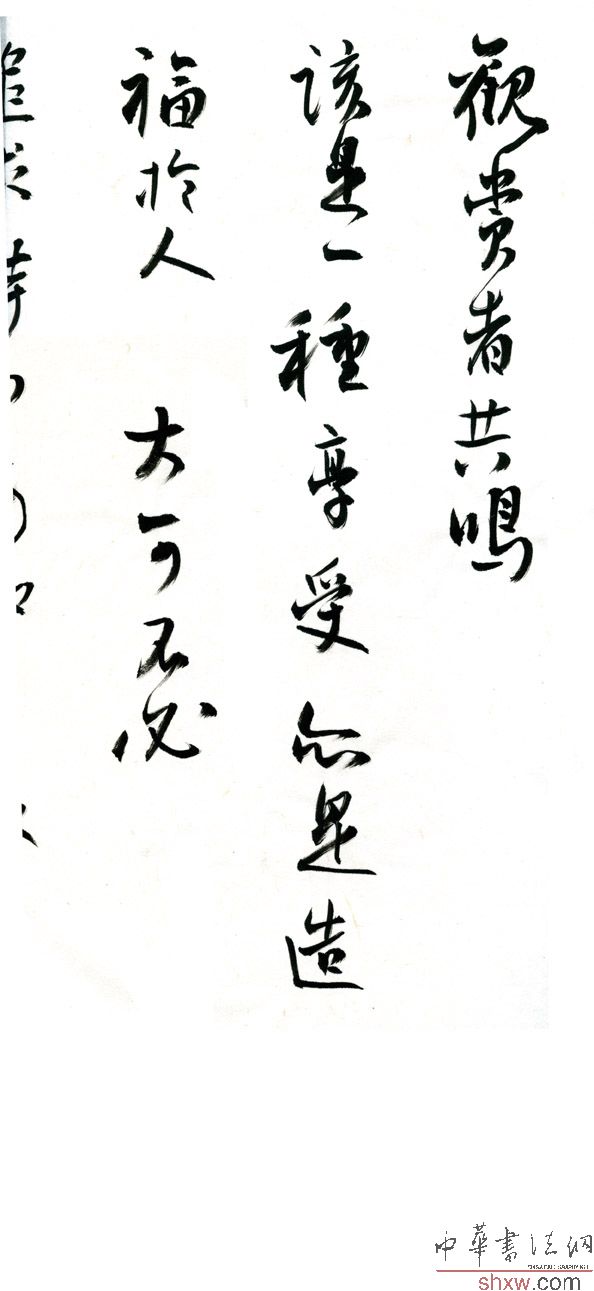 觀赏者共鳴
該是一種享受 亦是造
福於人 大可不必
中華書法網
shxw.com